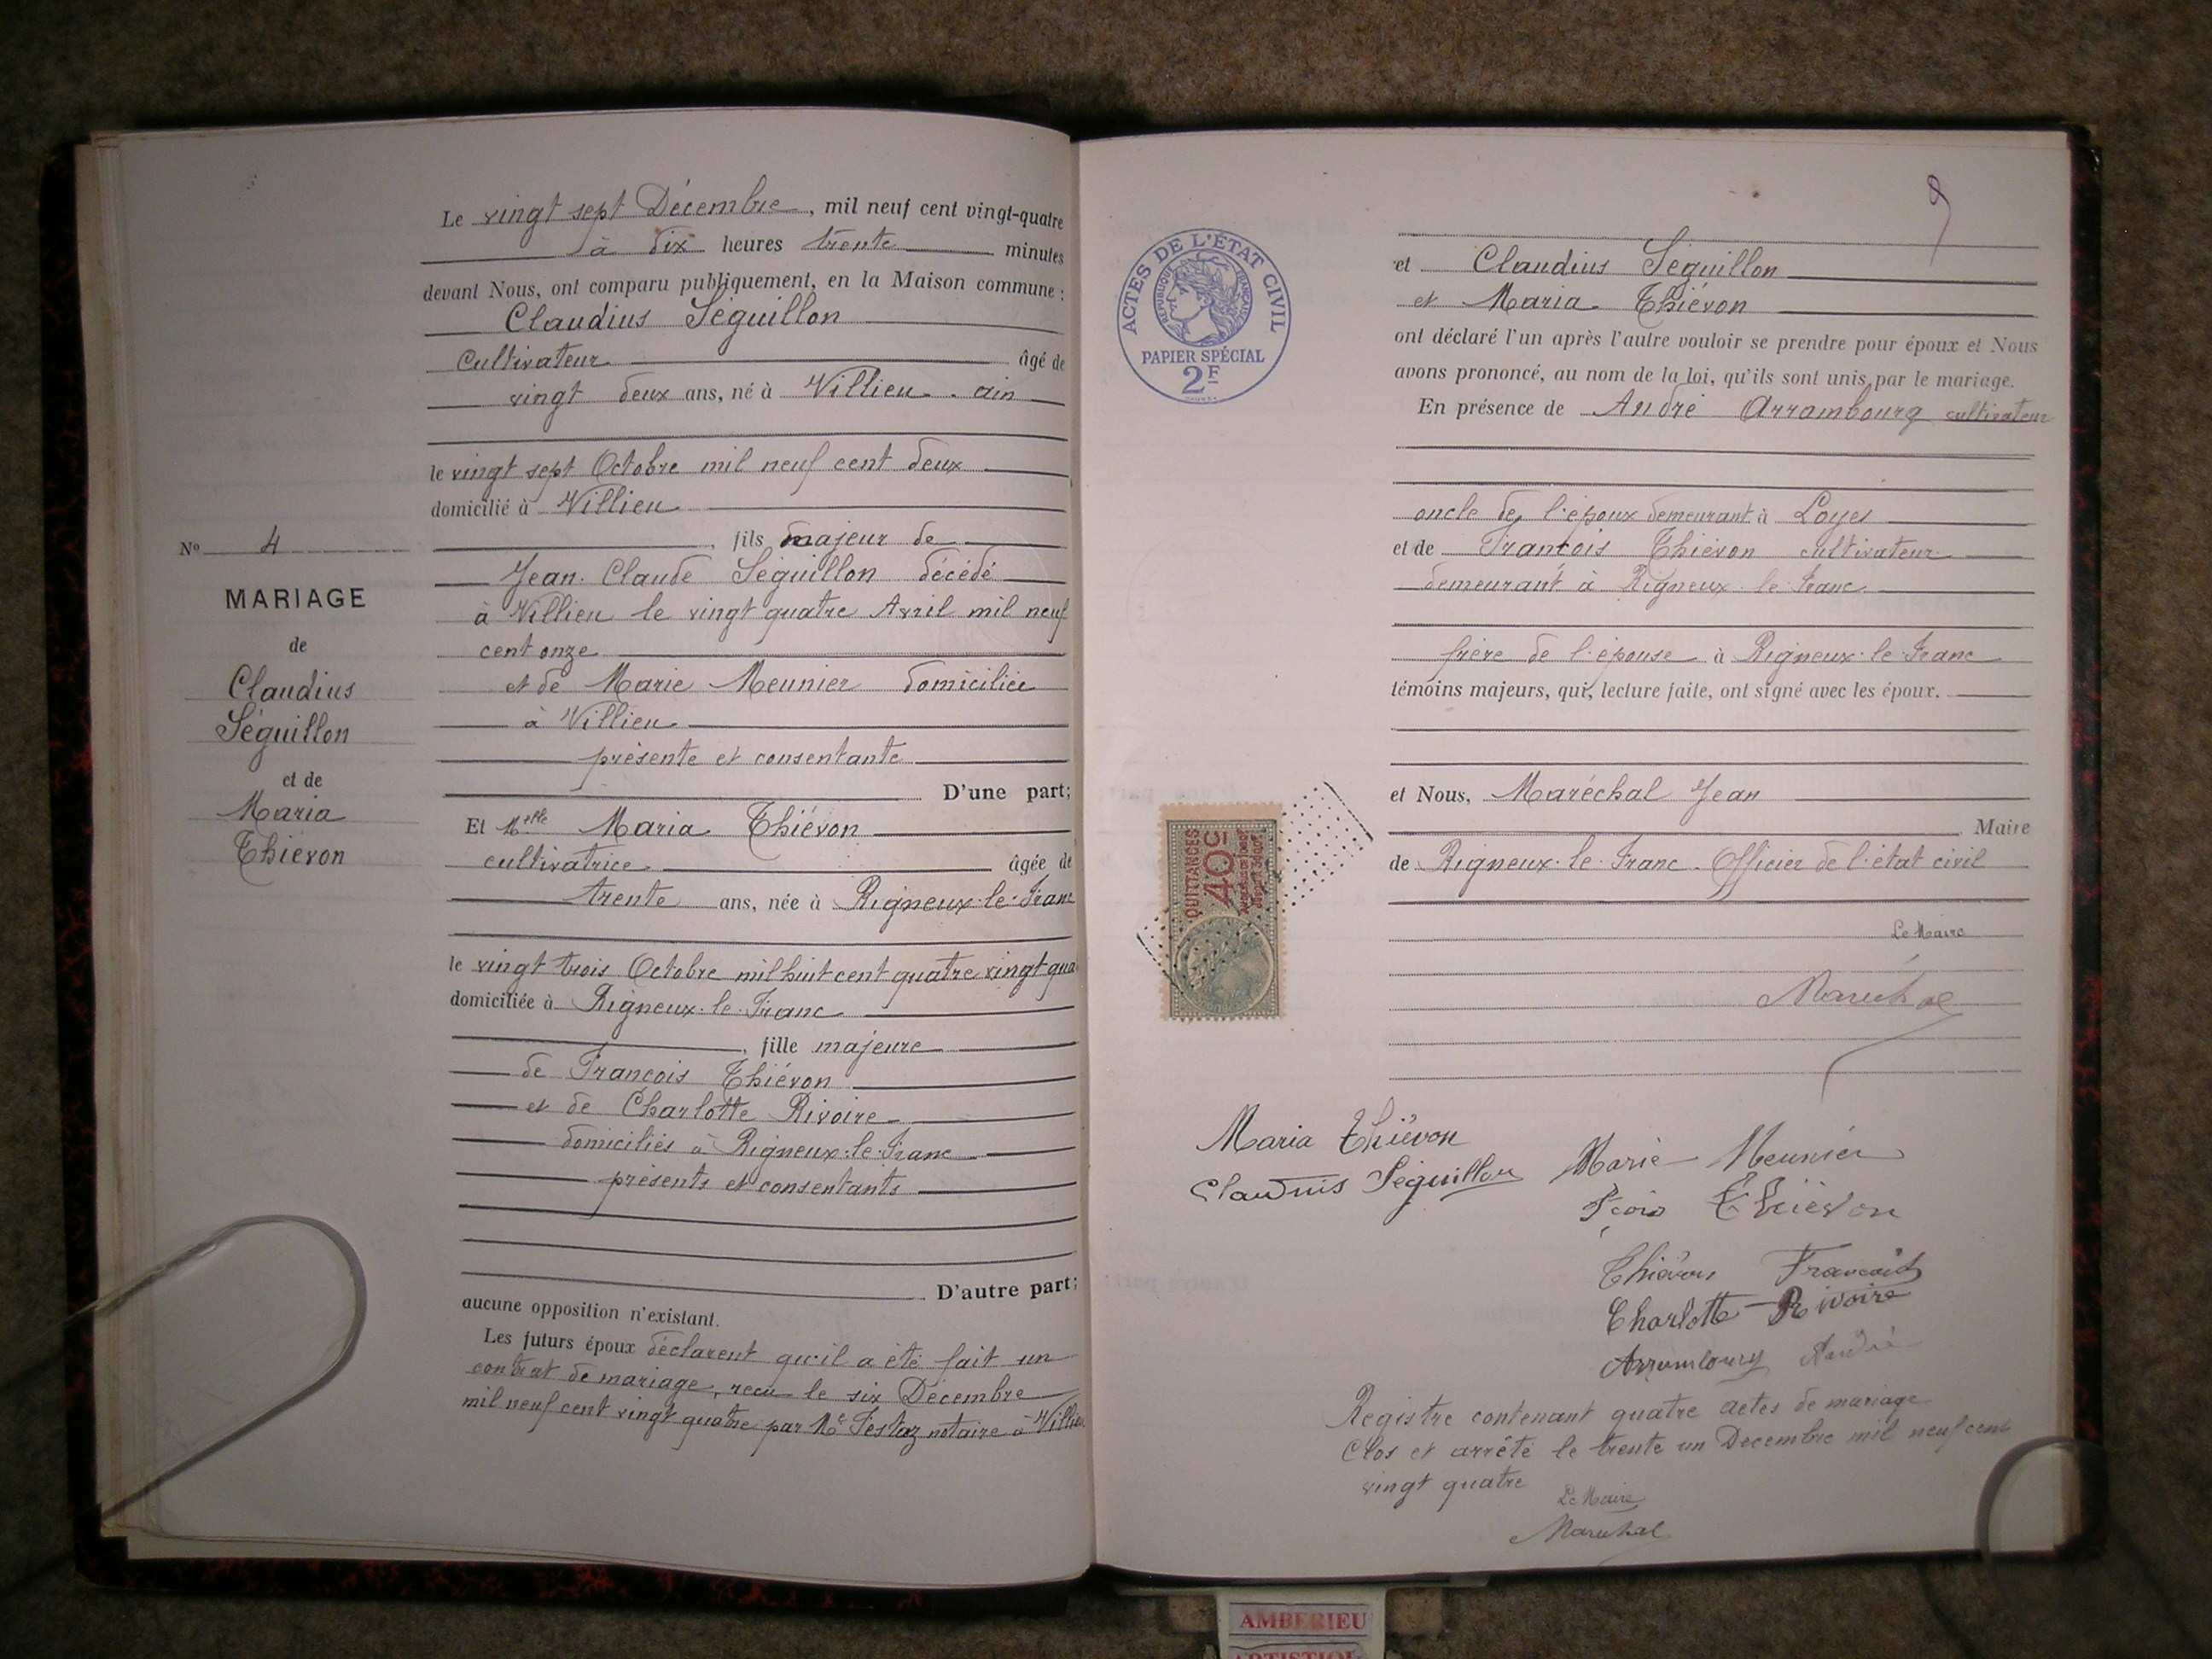 Le vingt sept Décembre, mil neuf cent vingt-quatre
à dix heures trente minutes
devant Nous, ont comparu publiquement, en la Maison commune :
Claudius Séguillon
Cultivateur âgé de
vingt deux ans, né à Villieu. ain
le vingt sept Octobre mil neuf cent deux
domicilié à Villieu
, fils majeur de
Jean. Claude Séguillon décédé
à Villieu le vingt quatre Avril mil neuf
cent onze
et de Marie Meunier domiciliée
à Villieu
présente et consentante
D'une part;
Et Melle Maria Thiévon
cultivatrice âgée de
trente ans, née à Rigneux-le-Franc
le vingt trois Octobre mil huit cent quatre vingt qua
domiciliée à Rigneux-le-Franc
, fille majeure
de François Thiévon
et de Charlotte Rivoire
domiciliés à Rigneux-le-Franc
présents et consentants
D'autre part;
aucune opposition n'existant.
Les futurs époux déclarent qu'il a été fait un
contrat de mariage, recu le six Décembre
mil neuf cent vingt quatre par Me notaire à Villieu
No 4
MARIAGE
de
Claudius
Séguillon
et de
Maria
Thiévon
9
ACTES DE L'ÉTAT CIVIL
RÉPUBLIQUE FRANÇAISE
PAPIER SPÉCIAL
2F
et Claudius Séguillon
et Maria Thiévon
ont déclaré l'un après l'autre vouloir se prendre pour époux et Nous
avons prononcé, au nom de la loi, qu'ils sont unis par le mariage.
En présence de André Arrambourg cultivateur
oncle de l'époux demeurant à Loyes
et de François Thiévon cultivateur
demeurant à Rigneux-le-Franc
frère de l'épouse à Rigneux-le-Franc
témoins majeurs, qui, lecture faite, ont signé avec les époux.
et Nous, Maréchal Jean
Maire
de Rigneux-le-Franc. Officier de l'état civil
Le Maire
Maréchal
QUITTANCES
40c
Maria Thiévon
Claudius Séguillon
Marie Meunier
Fçois Thiévon
Thiévon François
Charlotte Rivoire
Arrambourg André
Registre contenant quatre actes de mariage
Clos et arrêté le trente un Décembre mil neuf cent
vingt quatre
Le Maire
Maréchal
AMBERIEU